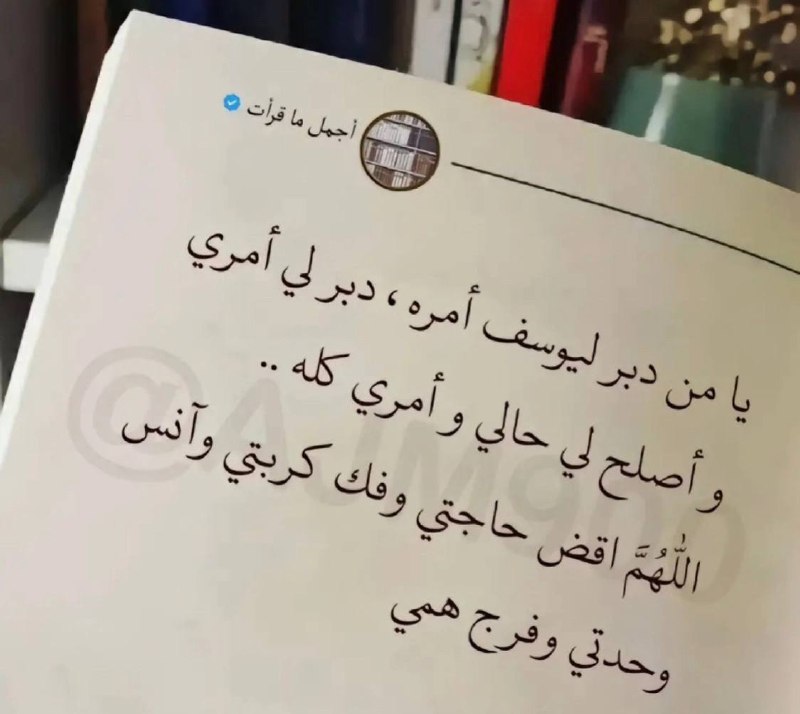 أجمل ما قرأت
يا من دبر ليوسف أمره ، دبر لي أمري
و أصلح لي حالي و أمري كله ..
اللّٰهُمَّ اقض حاجتي وفك كربتي وآنس
وحدتي وفرج همي
@AJM900